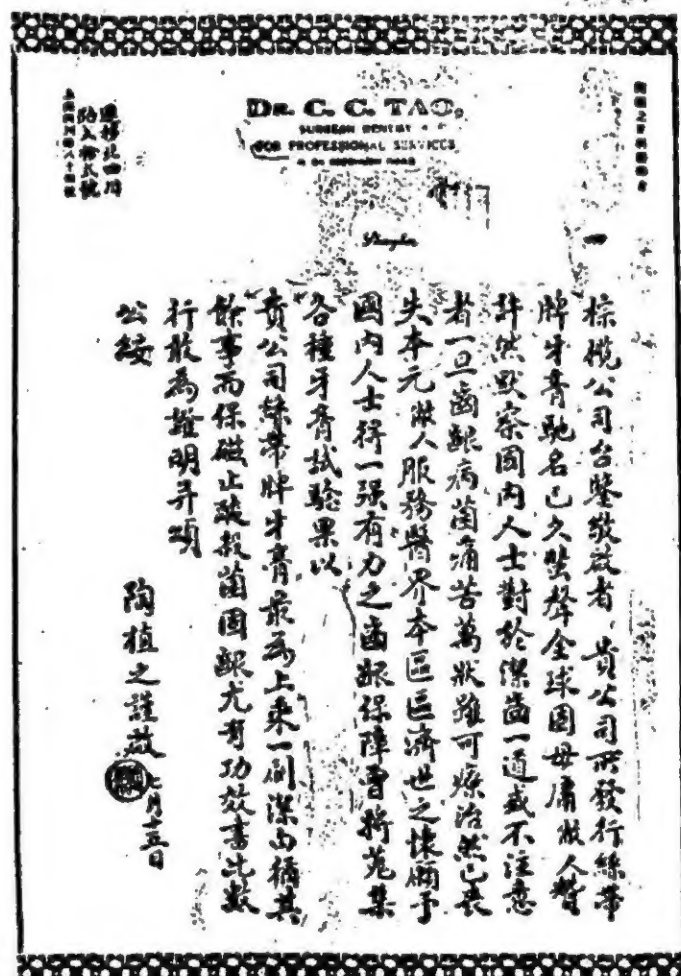 DR. C. C. TAO,
SURGEON DENTIST
FOR PROFESSIONAL SERVICES
Shanghai
棕欖公司台鑒敬啟者 貴公司所發行絲帶
牌牙膏馳名已久蜚聲全球固毋庸敝人贊
許然默察國內人士對於潔齒一道或不注意
者一旦齒齦病菌痛苦萬狀雖可療治然已喪
失本元敝人服務醫界本區區濟世之懷願予
國內人士得一强有力之齒齦保障曾將蒐集
各種牙膏試驗果以
貴公司絲帶牌牙膏最為上乘一刷潔白猶其
餘事而保磁止酸殺菌固齦尤有功效書此數
行敢為證明并頌
公綏
陶植之謹啟 七月十五日